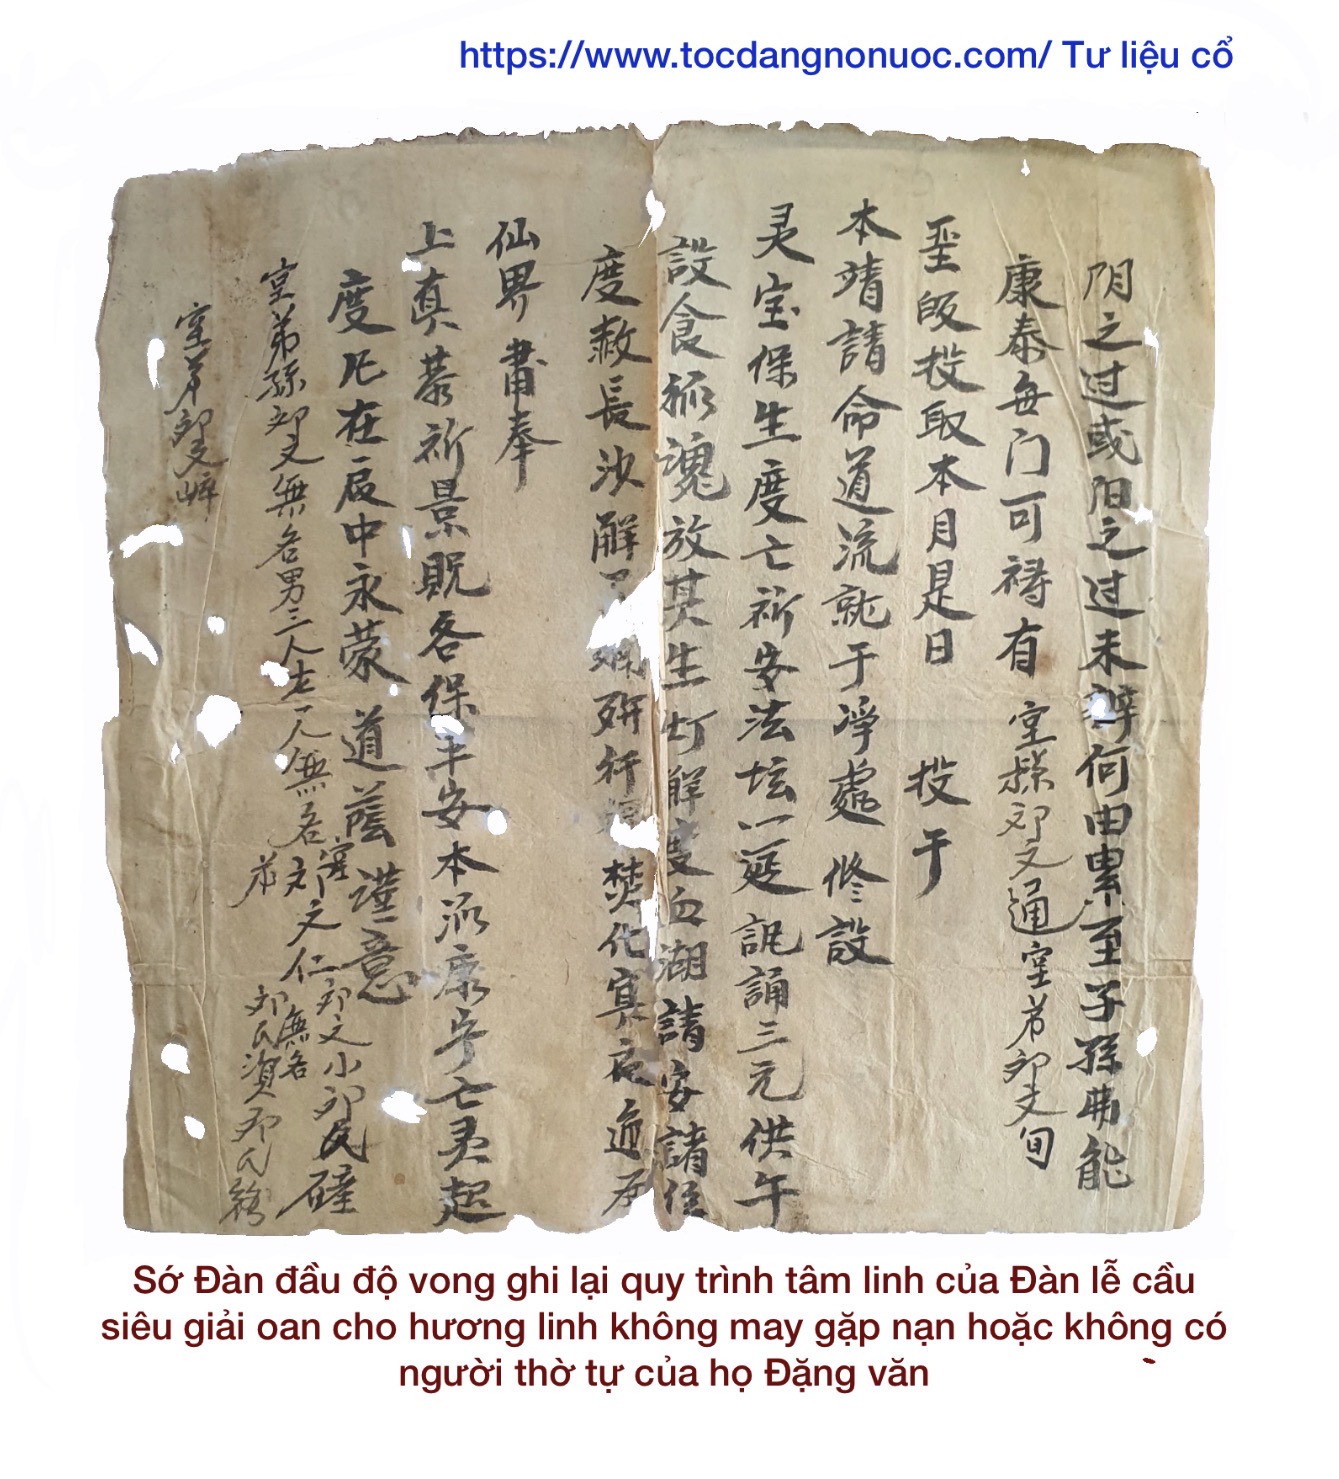 https://www.tocdangnonuoc.com/ Tư liệu cổ
阴之过或阳之过未辨何由累至子孫弗能
康泰每门可禱有 室孫邓文通室弟邓文旬
投取本月是日 投于
本靖請命道流就于净處 修設
灵宝保生度亡祈安法坛一延 誦三元供午
設食孤魂放其生灯解度血湖請安諸位
度赦長沙解 焚化冥
仙界 奉
上真恭祈景貺各保平安本派康宁亡灵超
度凡在 中永蒙 道蔭謹意
室弟孫邓文無名男三人 一人無名 邓文仁 邓文小邓氏
無名
邓氏 邓氏
室弟邓文
Sớ Đàn đầu độ vong ghi lại quy trình tâm linh của Đàn lễ cầu
siêu giải oan cho hương linh không may gặp nạn hoặc không có
người thờ tự của họ Đặng văn